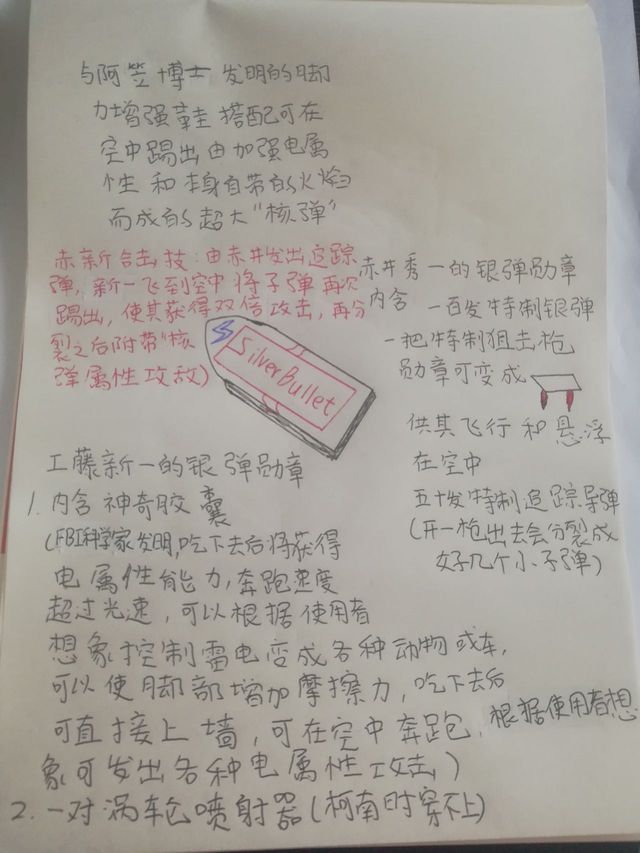 与阿笠博士发明的脚
力增强鞋搭配可在
空中踢出由加强电属
性和本身自带的火焰
而成的超大“核弹”
赤新合击技：由赤井发出追踪
弹，新一飞到空中将子弹再次
踢出，使其获得双倍攻击，再分
裂之后附带“核
弹属性攻敌）
赤井秀一的银弹勋章
内含 一百发特制银弹
一把特制狙击枪
勋章可变成
供其飞行和悬浮
在空中
五十发特制追踪导弹
（开一枪出去会分裂成
好几个小子弹）
SilverBullet
工藤新一的银弹勋章
1. 内含神奇胶囊
（FBI科学家发明，吃下去后将获得
电属性能力，奔跑速度
超过光速，可以根据使用者
想象控制雷电变成各种动物或车，
可以使脚部增加摩擦力，吃下去后
可直接上墙，可在空中奔跑，根据使用者想
象可发出各种电属性攻击）
2. 一对涡轮喷射器（柯南时穿不上）